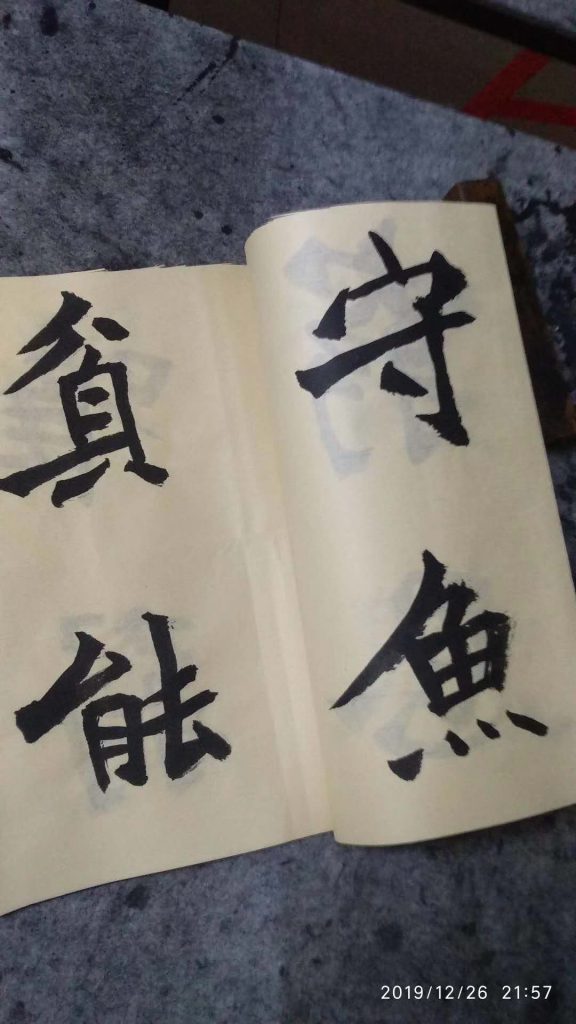 守魚
貧能
2019/12/26 21:57